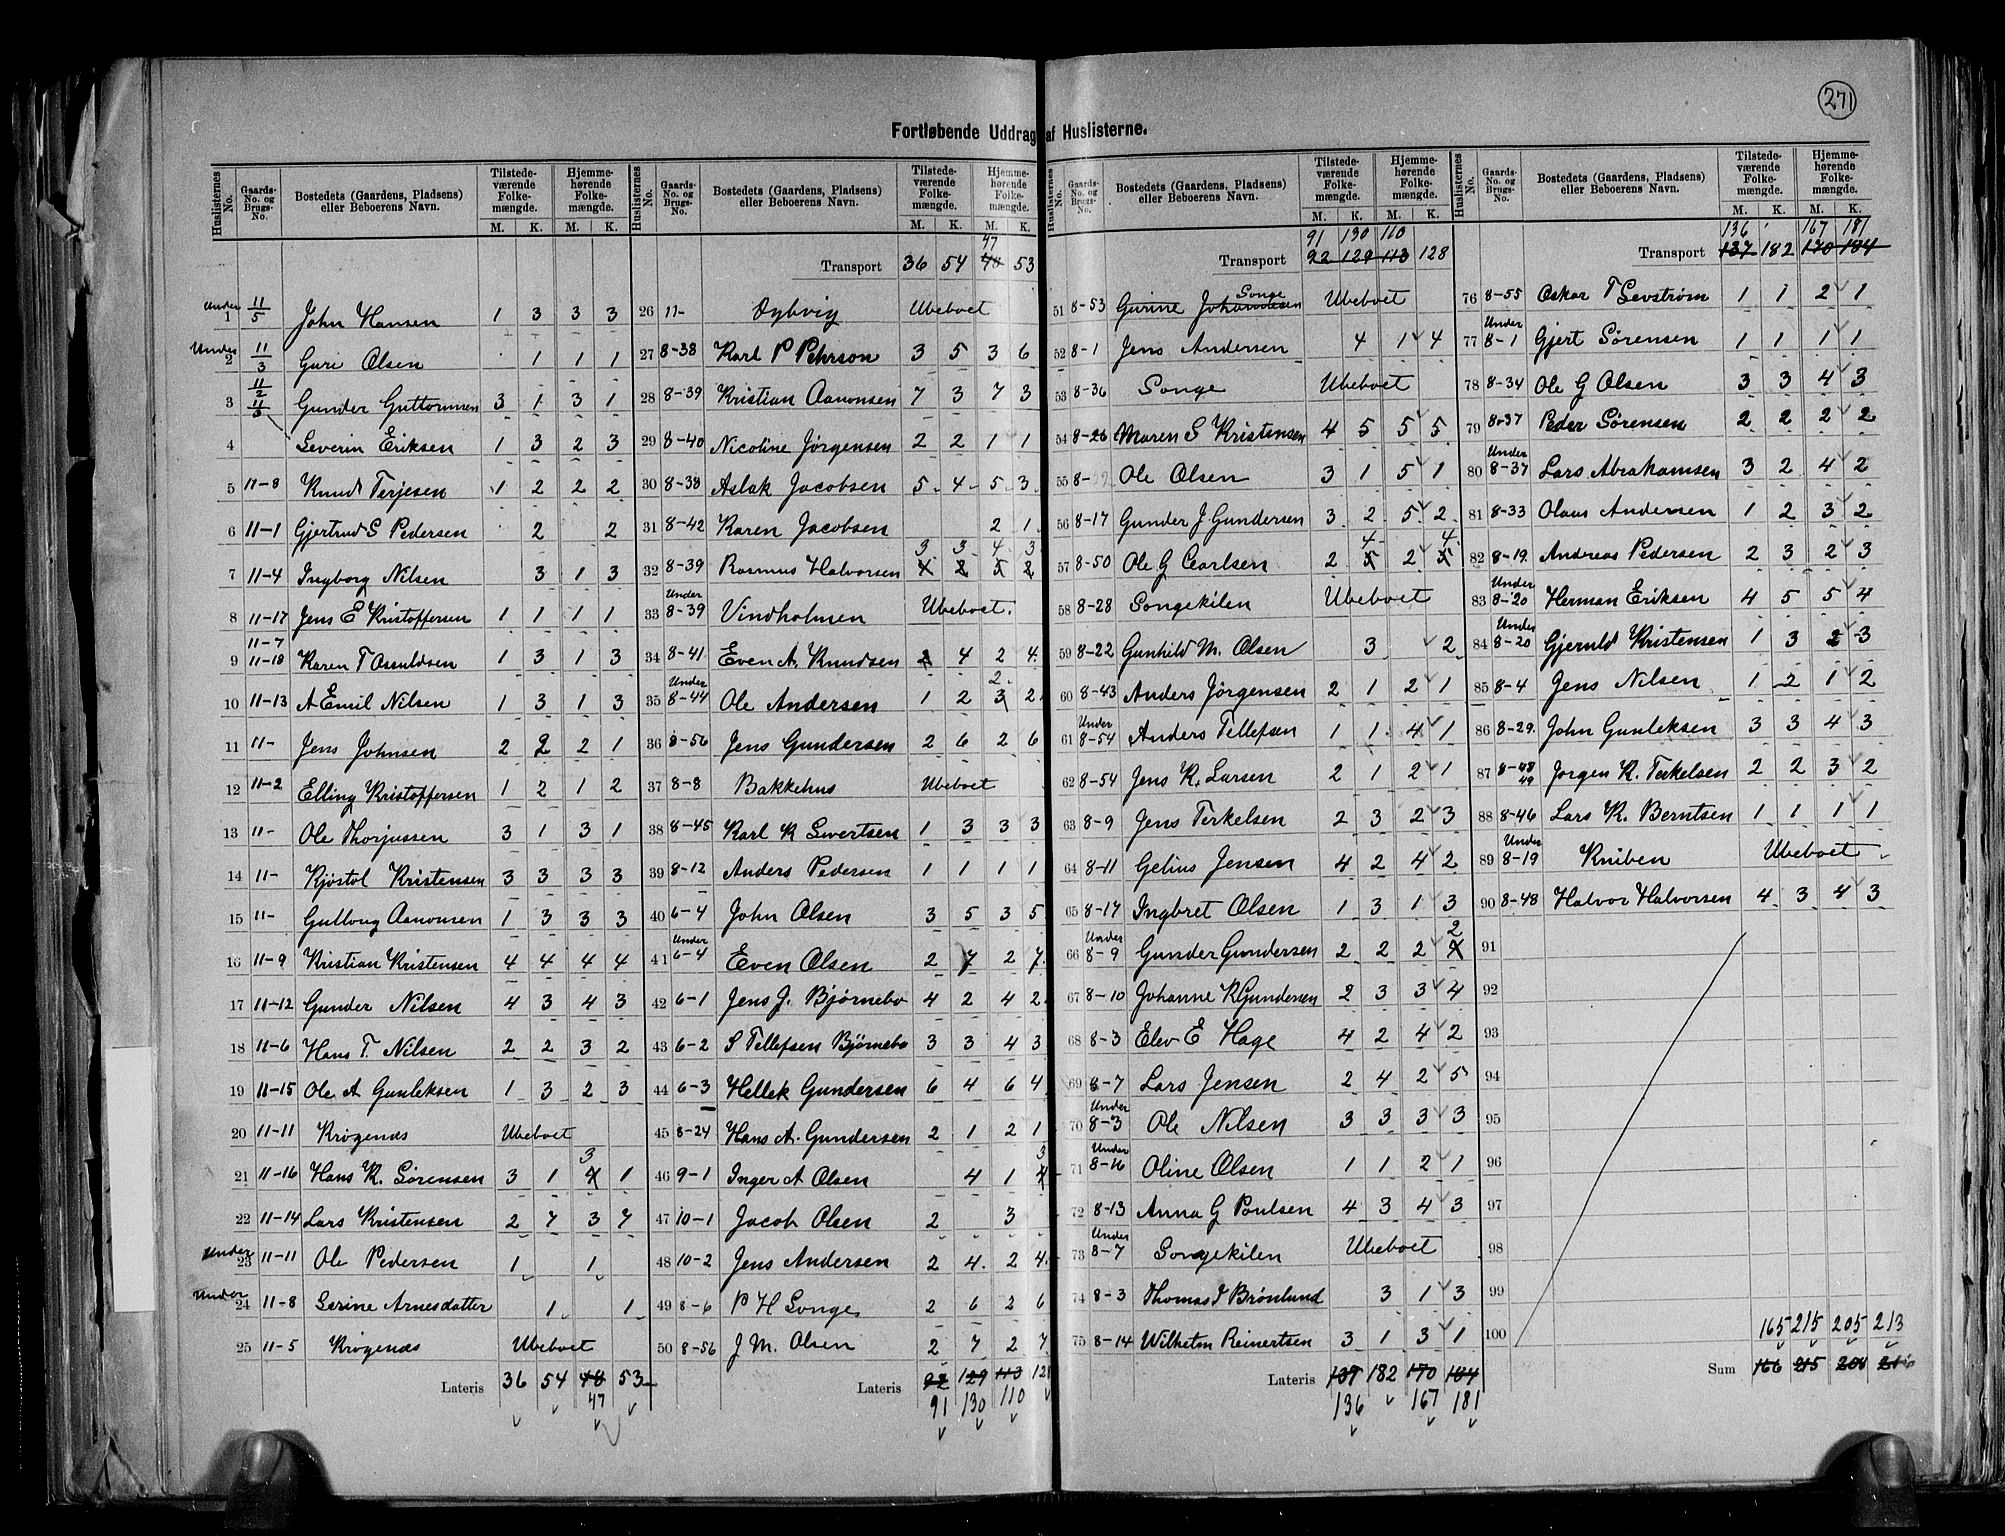 271
Fortløbende Uddrag af Huslisterne.
Huslisternes No. | Gaards-No. og Brugs-No. | Bostedets (Gaardens, Pladsens) eller Beboerens Navn. | Tilstedeværende Folkemængde. M. K. | Hjemmehørende Folkemængde. M. K.
Under 1 11/5 John Hansen 1 3 3 3
Under 2 11/3 Guri Olsen 1 1 1
3 11/2 11/3 Gunder Guttormsen 3 1 3 1
4 Severin Eriksen 1 3 2 3
5 11-8 Knud Terjesen 1 2 2 2
6 11-1 Gjertrud S Pedersen 2 2
7 11-4 Ingborg Nilsen 3 1 3
8 11-17 Jens E Kristoffersen 1 1 1 1
9 11-7 11-18 Karen T Osuldsen 1 3 1 3
10 11-13 A Emil Nilsen 1 3 1 3
11 11- Jens Johnsen 2 2 2 1
12 11-2 Elling Kristoffersen 1 2 1 2
13 11- Ole Thorjussen 3 1 3 1
14 11- Kjøstol Kristensen 3 3 3 3
15 11- Gullaug Aanonsen 1 3 3 3
16 11-9 Kristian Kristensen 4 4 4 4
17 11-12 Gunder Nilsen 4 3 4 3
18 11-6 Hans T. Nilsen 2 2 3 2
19 11-15 Ole A Gunleksen 1 3 2 3
20 11-11 Krøgenæs Ubeboet
21 11-16 Hans K. Sørensen 3 1 4 3 1
22 11-14 Lars Kristensen 2 7 3 7
Under 23 11-11 Ole Pedersen 1 1
Under 24 11-8 Serine Arnesdatter 1 1
25 11-5 Krøgenæs Ubeboet
Lateris 36 54 48 47 53
Huslisternes No. | Gaards-No. og Brugs-No. | Bostedets (Gaardens, Pladsens) eller Beboerens Navn. | Tilstedeværende Folkemængde. M. K. | Hjemmehørende Folkemængde. M. K.
Transport 36 54 48 47 53
26 11- Dybvig Ubeboet
27 8-38 Karl P Pehrson 3 5 3 6
28 8-39 Kristian Aanonsen 7 3 7 3
29 8-40 Nicoline Jørgensen 2 2 1 1
30 8-38 Aslak Jacobsen 5 4 5 3
31 8-42 Karen Jacobsen 2 1
32 8-39 Rasmus Halvorsen 3 3 4 3
33 Under 8-39 Vindholmen Ubeboet.
34 8-41 Even A. Knudsen 2 4 2 4
35 Under 8-44 Ole Andersen 1 2 3 2 2
36 8-56 Jens Gundersen 2 6 2 6
37 8-8 Bakkehus Ubeboet
38 8-45 Karl K Sivertsen 1 3 3 3
39 8-12 Anders Pedersen 1 1 1 1
40 6-4 John Olsen 3 5 3 5
41 Under 6-4 Even Olsen 2 7 2 7
42 6-1 Jens J. Bjørnebo 4 2 4 2
43 6-2 S Tellefsen Bjørnebo 3 3 4 3
44 6-3 Hellek Gundersen 6 4 6 4
45 8-24 Hans A. Gundersen 2 1 2 1
46 9-1 Inger A Olsen 4 1 4 3
47 10-1 Jacob Olsen 2 3
48 10-2 Jens Andersen 2 4 2 4
49 8-6 P H Songe 2 6 2 6
50 8-56 J M. Olsen 2 7 2 7
Lateris 92 129 113 128
91 130 110
Huslisternes No. | Gaards-No. og Brugs-No. | Bostedets (Gaardens, Pladsens) eller Beboerens Navn. | Tilstedeværende Folkemængde. M. K. | Hjemmehørende Folkemængde. M. K.
91 130 110
Transport 92 129 113 128
51 8-53 Gurine Johannesen Songe Ubeboet
52 8-1 Jens Andersen 4 1 4
53 8-36 Songe Ubeboet
54 8-26 Maren S Kristensen 4 5 5 5
55 8- Ole Olsen 3 1 5 1
56 8-17 Gunder J Gundersen 3 2 5 2
57 8-50 Ole G Carlsen 2 5 4 2 5 4
58 8-28 Songekilen Ubeboet
59 8-22 Gunhild M. Olsen 3 2
60 8-43 Anders Jørgensen 2 1 2 1
61 Under 8-54 Anders Tellefsen 1 1 4 1
62 8-54 Jens K. Larsen 2 1 2 1
63 8-9 Jens Terkelsen 2 3 2 3
64 8-11 Gelius Jensen 4 2 4 2
65 8-17 Ingbret Olsen 1 3 1 3
66 Under 8-9 Gunder Gundersen 2 2 2 4 2
67 8-10 Johanne K Gundersen 2 3 3 4
68 8-3 Elev E Hage 4 2 4 2
69 8-7 Lars Jensen 2 4 2 5
70 Under 8-3 Ole Nilsen 3 3 3 3
71 Under 8-16 Oline Olsen 1 1 2 1
72 8-13 Anna G Poulsen 4 3 4 3
73 Under 8-7 Songekilen Ubeboet
74 8-3 Thomas J Brønlund 3 1 3
75 8-14 Wilhelm Reinertsen 3 1 3 1
Lateris 137 182 170 184
136 167 181
Huslisternes No. | Gaards-No. og Brugs-No. | Bostedets (Gaardens, Pladsens) eller Beboerens Navn. | Tilstedeværende Folkemængde. M. K. | Hjemmehørende Folkemængde. M. K.
136 167 181
Transport 137 182 170 184
76 8-55 Oskar T Sevstrøm 1 1 2 1
77 Under 8-1 Gjert Sørensen 1 1 1 1
78 8-34 Ole G Olsen 3 3 4 3
79 8-37 Peder Sørensen 2 2 2 2
80 Under 8-37 Lars Abrahamsen 3 2 4 2
81 8-33 Olaus Andersen 1 2 3 2
82 8-19. Andreas Pedersen 2 3 2 3
83 Under 8-20 Herman Eriksen 4 5 5 4
84 Under 8-20 Gjeruld Kristensen 1 3 2 3
85 8-4 Jens Nilsen 1 2 1 2
86 8-29. John Gunleksen 3 3 4 3
87 8-48 49 Jørgen K. Terkelsen 2 2 3 2
88 8-46 Lars K. Berntsen 1 1 1 1
89 Under 8-19 Kniben Ubeboet
90 8-48 Halvor Halvorsen 4 3 4 3
91
92
93
94
95
96
97
98
99
100
165 215 205 213
Sum 166 215 208 216